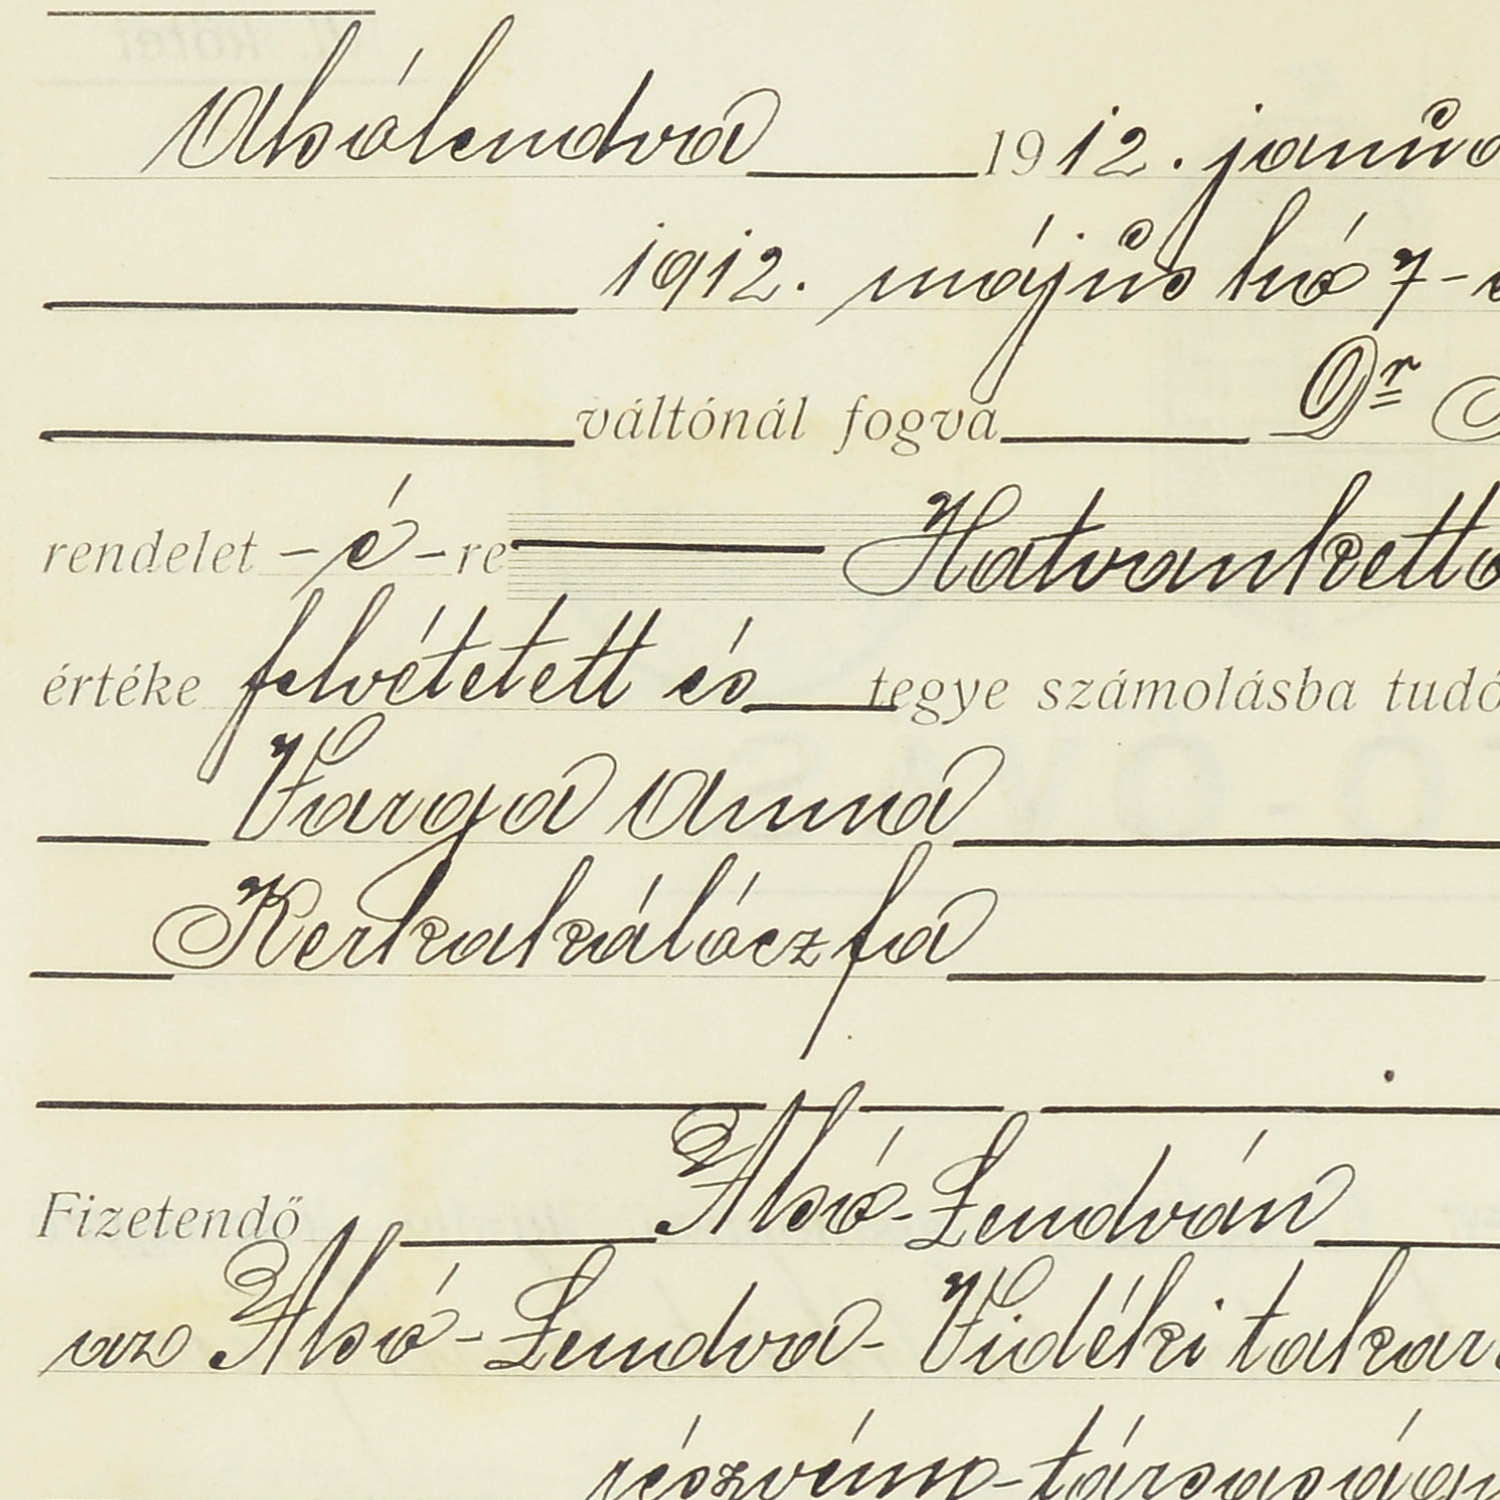 Alsólendva 1912. január
1912. május hó 7-
váltónál fogva Dr
rendelet -é-re Hatvankettő
értéke felvétetett és tegye számolásba tudó
Varga Anna
Kerkakálóczfa
Fizetendő Alsó-Lendván
az Alsó-Lendva-Vidéki takar
részvény-társaságn